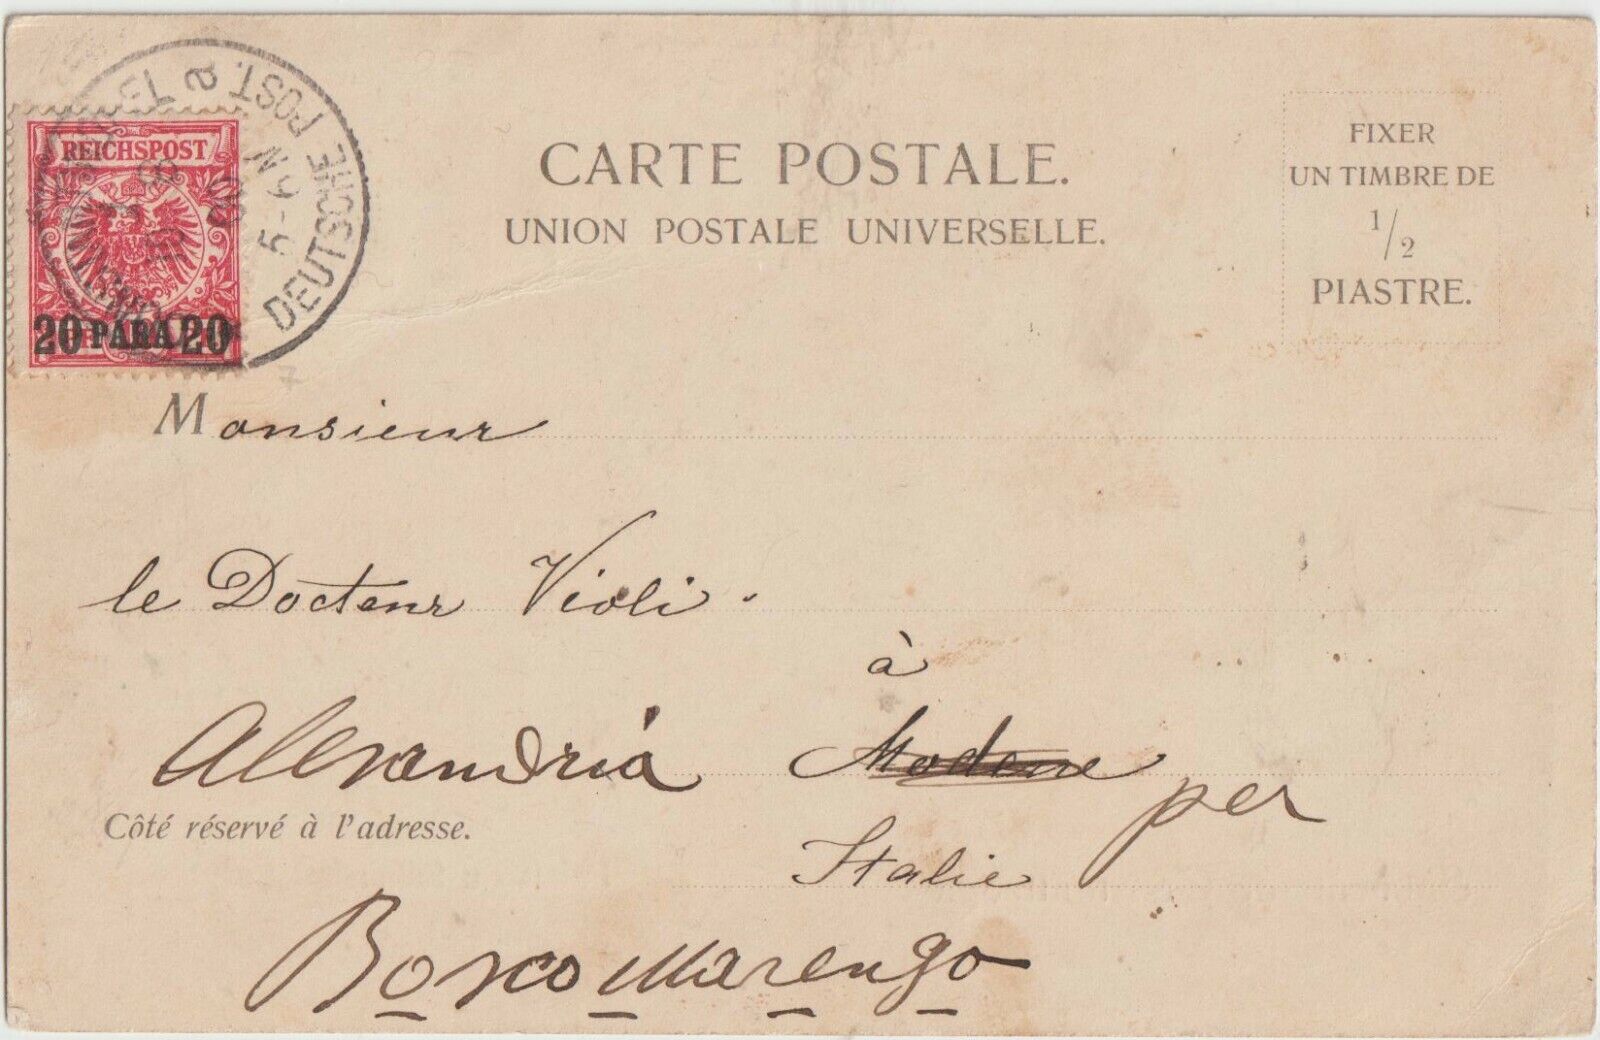 CARTE POSTALE.
UNION POSTALE UNIVERSELLE.
FIXER
UN TIMBRE DE
1/2
PIASTRE.
REICHSPOST
20 PARA 20
DEUTSCHE POST. a
5-6 N
00
Monsieur
le Docteur Violi.
à
Alexandria Modene per
Côté réservé à l'adresse.
Italie
Bosco Marengo